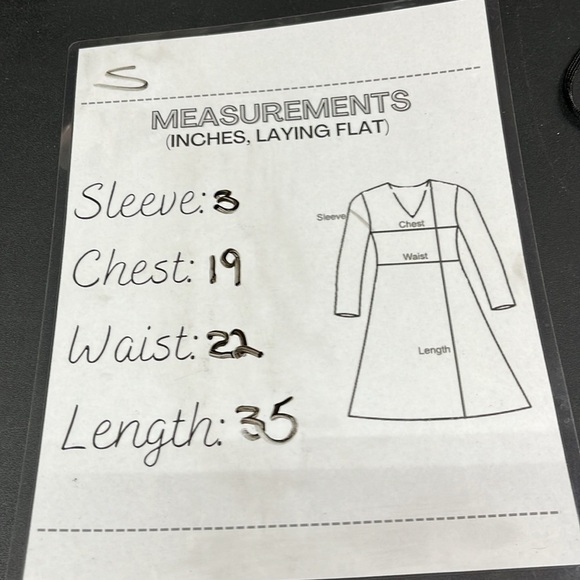 S
MEASUREMENTS
(INCHES, LAYING FLAT)
Sleeve: 3
Chest: 19
Waist: 22
Length: 35
Sleeve
Chest
Waist
Length